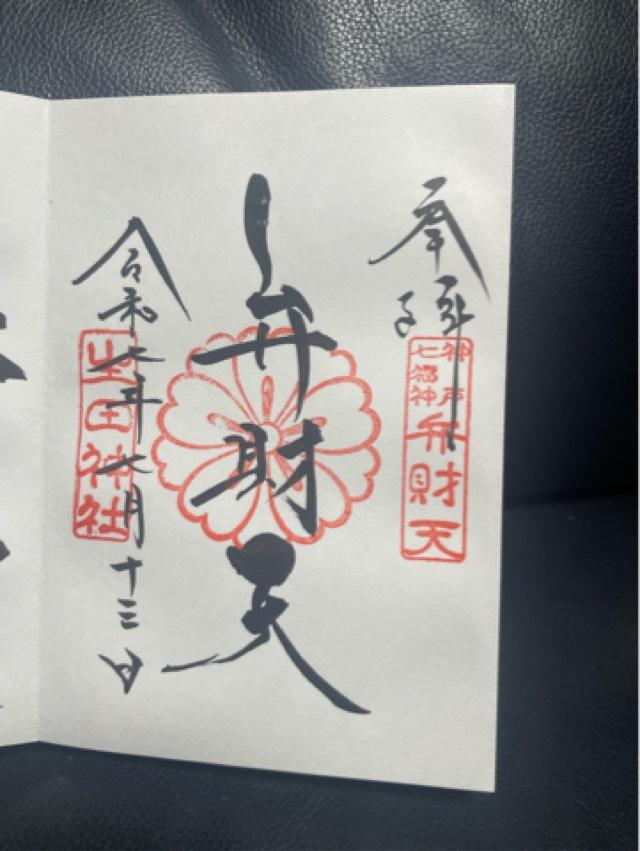 奉拝
神戸
七福神
弁財天
弁財天
令和七年七月十三日
生田神社